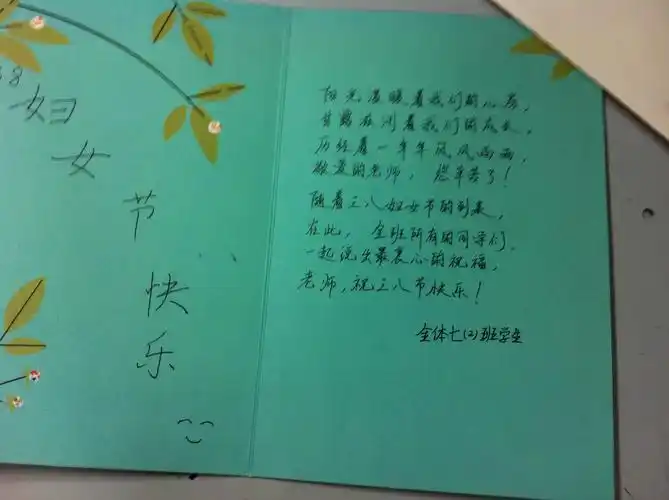 38
妇
女
节
快
乐
阳光温暖着我们的心房,
甘露滋润着我们的成长,
历经着一年年风风雨雨,
敬爱的老师，您辛苦了!
随着三八妇女节的到来,
在此，全班所有的同学们,
一起说出最衷心的祝福,
老师,祝三八节快乐!
全体七(2)班学生